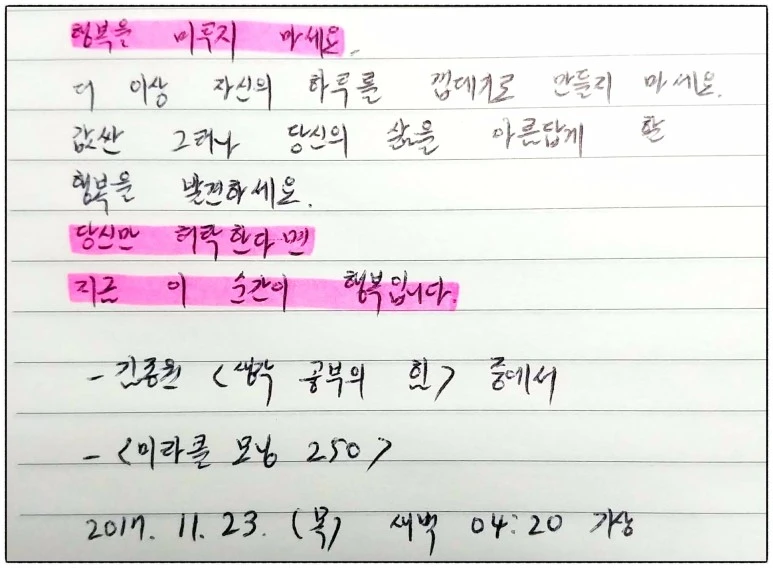 행복을 미루지 마세요.
더 이상 자신의 하루를 껍데기로 만들지 마세요.
값싼 그러나 당신의 삶을 아름답게 할
행복을 발견하세요.
당신만 허락한다면
지금 이 순간이 행복입니다.
- 김종원 <생각 공부의 힘> 중에서
- <미라클 모닝 250>
2017. 11. 23. (목) 새벽 04:20 기상